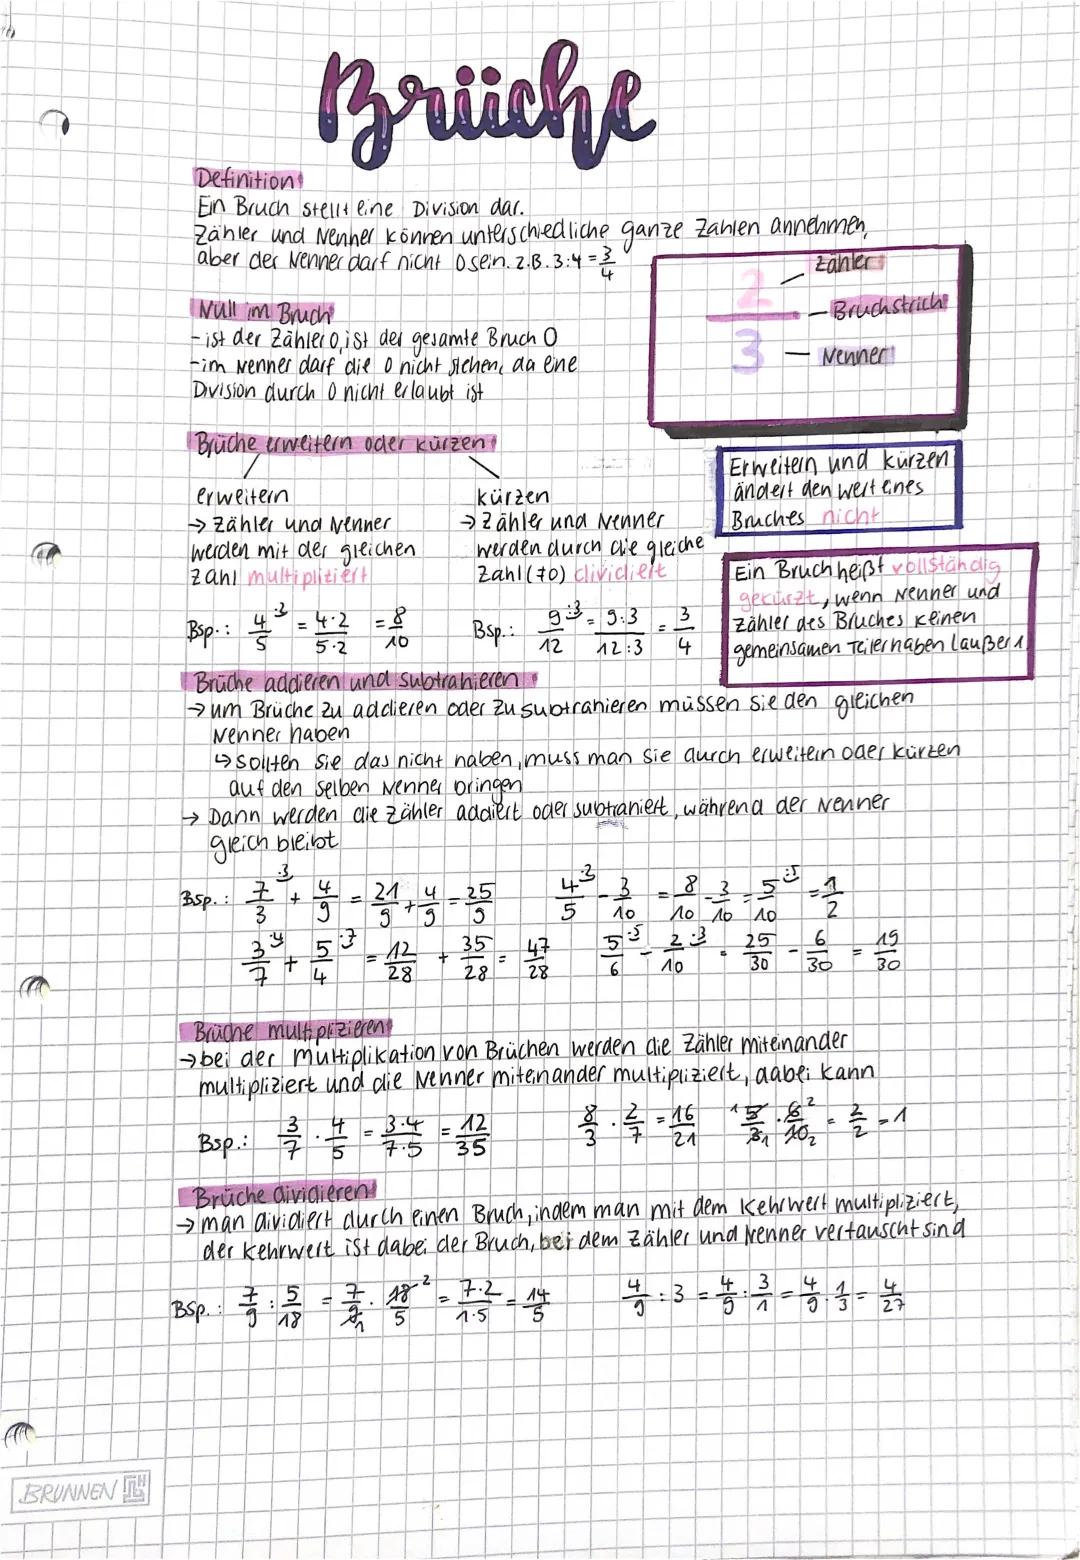 Brüche
Definition
Ein Bruch stellt eine Division dar.
Zähler und Nenner können unterschiedliche ganze Zahlen annehmen,
aber der Nenner darf nicht 0 sein. z.B. 3:4 = 3/4
2/3
Zähler
Bruchstrich
Nenner
Null im Bruch
- ist der Zähler 0, ist der gesamte Bruch 0
- im Nenner darf die 0 nicht stehen, da eine
Division durch 0 nicht erlaubt ist
Brüche erweitern oder kürzen
erweitern
→ Zähler und Nenner
werden mit der gleichen
Zahl multipliziert
Bsp.: 4/5 = 4·2/5·2 = 8/10
kürzen
→ Zähler und Nenner
werden durch die gleiche
Zahl (≠0) dividiert
Bsp.: 9/12 :3 = 9:3/12:3 = 3/4
Erweitern und kürzen
ändert den Wert eines
Bruches nicht
Ein Bruch heißt vollständig
gekürzt, wenn Nenner und
Zähler des Bruches keinen
gemeinsamen Teiler haben (außer 1
Brüche addieren und subtrahieren
→ um Brüche zu addieren oder zu subtrahieren müssen sie den gleichen
Nenner haben
↳ sollten sie das nicht haben, muss man sie durch erweitern oder kürzen
auf den selben Nenner bringen
→ Dann werden die Zähler addiert oder subtrahiert, während der Nenner
gleich bleibt
Bsp.: 7/3 ·3 + 4/9 = 21/9 + 4/9 = 25/9 4/5 - 3/10 = 8/10 - 3/10 = 5/10 :5 = 1/2
3/7 ·4 + 5/4 ·7 = 12/28 + 35/28 = 47/28 5/6 ·5 - 2/10 ·3 = 25/30 - 6/30 = 19/30
Brüche multiplizieren
→ bei der Multiplikation von Brüchen werden die Zähler miteinander
multipliziert und die Nenner miteinander multipliziert, dabei kann
Bsp.: 3/7 · 4/5 = 3·4/7·5 = 12/35 8/3 · 2/7 = 16/21 = 2/2 = 1
Brüche dividieren
→ man dividiert durch einen Bruch, indem man mit dem Kehrwert multipliziert,
der Kehrwert ist dabei der Bruch, bei dem Zähler und Nenner vertauscht sind
Bsp.: 7/9 : 5/18 = 7/9 · 18/5 = 7·2/1·5 = 14/5 4/9 : 3 = 4/9 : 3/1 = 4/9 · 1/3 = 4/27
BRUNNEN